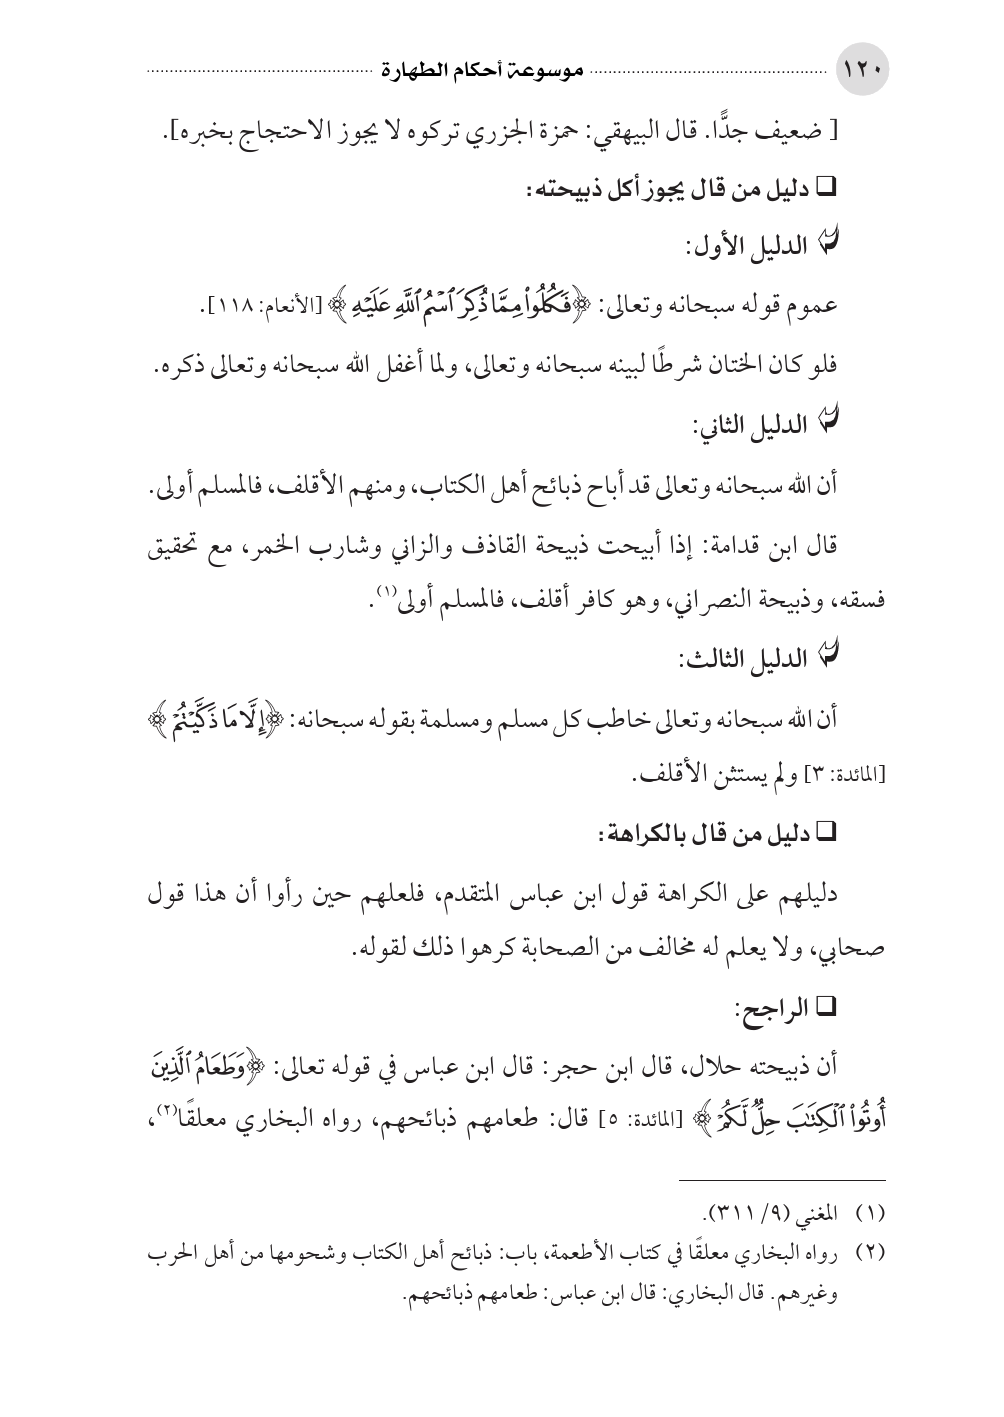 ١٢٠ موسوعة أحكام الطهارة
[ ضعيف جدًّا. قال البيهقي: حمزة الجزري تركوه لا يجوز الاحتجاج بخبره].
❑ دليل من قال يجوز أكل ذبيحته:
الدليل الأول:
عموم قوله سبحانه وتعالى: ﴿فَكُلُوا۟ مِمَّا ذُكِرَ ٱسْمُ ٱللَّهِ عَلَيْهِ﴾ [الأنعام: ١١٨].
فلو كان الختان شرطًا لبينه سبحانه وتعالى، ولما أغفل الله سبحانه وتعالى ذكره.
الدليل الثاني:
أن الله سبحانه وتعالى قد أباح ذبائح أهل الكتاب، ومنهم الأقلف، فالمسلم أولى.
قال ابن قدامة: إذا أبيحت ذبيحة القاذف والزاني وشارب الخمر، مع تحقيق
فسقه، وذبيحة النصراني، وهو كافر أقلف، فالمسلم أولى(١).
الدليل الثالث:
أن الله سبحانه وتعالى خاطب كل مسلم ومسلمة بقوله سبحانه: ﴿إِلَّا مَا ذَكَّيْتُمْ﴾
[المائدة: ٣] ولم يستثن الأقلف.
❑ دليل من قال بالكراهة:
دليلهم على الكراهة قول ابن عباس المتقدم، فلعلهم حين رأوا أن هذا قول
صحابي، ولا يعلم له مخالف من الصحابة كرهوا ذلك لقوله.
❑ الراجح:
أن ذبيحته حلال، قال ابن حجر: قال ابن عباس في قوله تعالى: ﴿وَطَعَامُ ٱلَّذِينَ
أُوتُوا۟ ٱلْكِتَٰبَ حِلٌّ لَّكُمْ﴾ [المائدة: ٥] قال: طعامهم ذبائحهم، رواه البخاري معلقًا(٢)،
(١) المغني (٩/ ٣١١).
(٢) رواه البخاري معلقًا في كتاب الأطعمة، باب: ذبائح أهل الكتاب وشحومها من أهل الحرب
وغيرهم. قال البخاري: قال ابن عباس: طعامهم ذبائحهم.